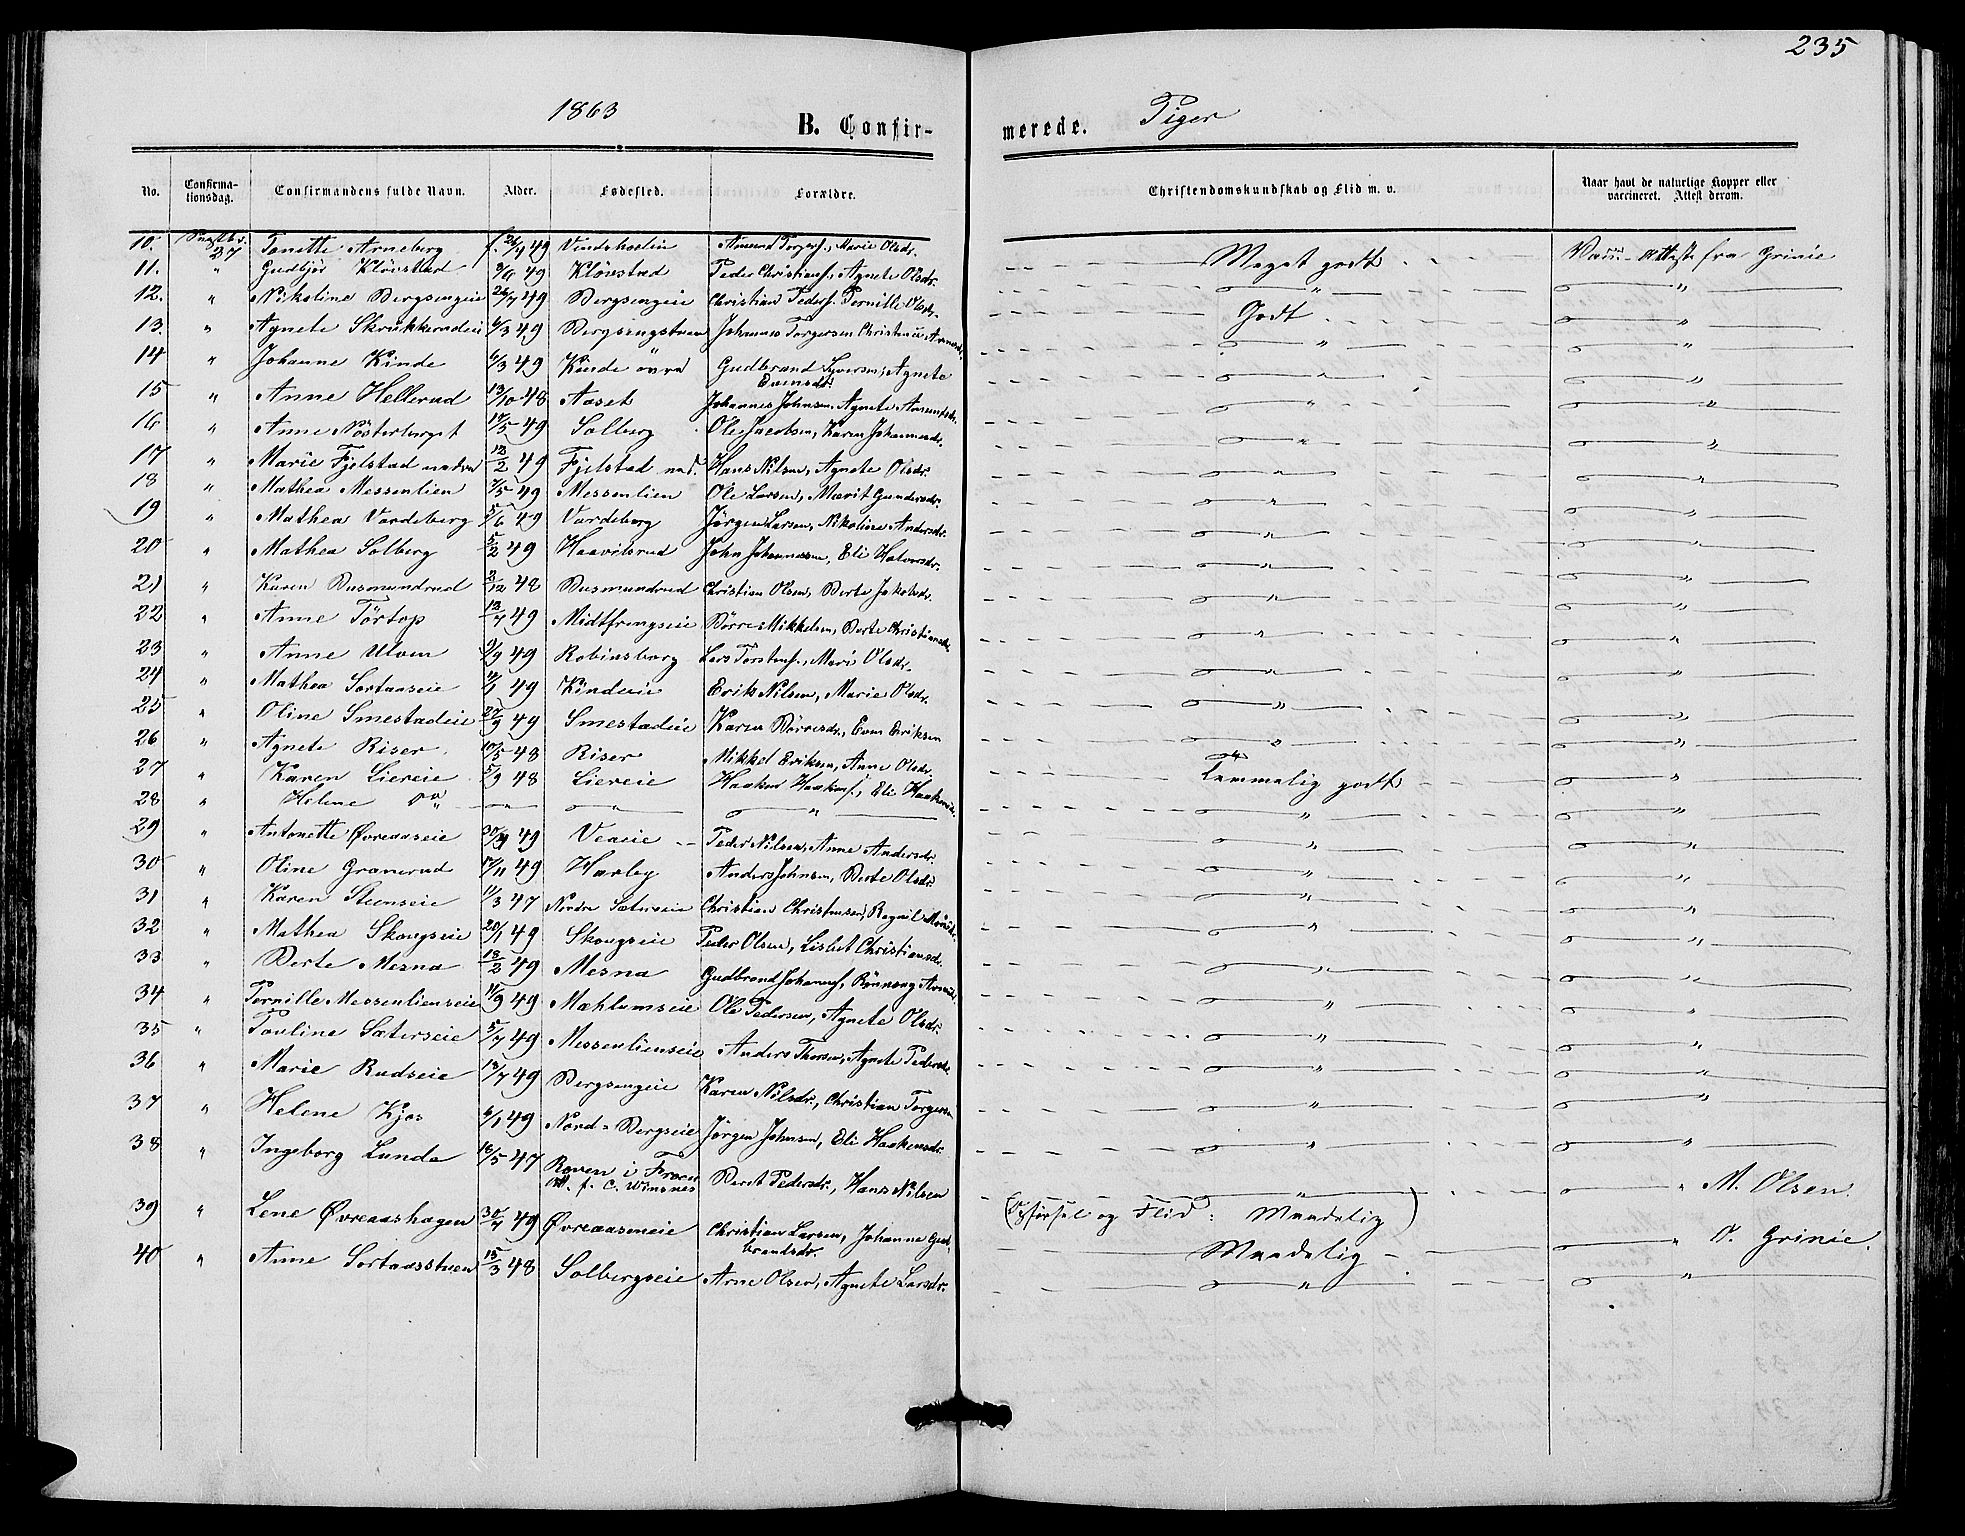 235
1863
B. Confir-
merede.
Piger
No.
Confirma-
tionsdag.
Confirmandens fulde Navn.
Alder.
Fødested.
Forældre.
Christendomskundskab og Flid m. v.
Naar havt de naturlige Kopper eller
vaccineret. Attest derom.
10. 27 Tonette Arneberg f. 26/4 49 Amund Torgersf., Marie Olsdr. Meget godt Attest fra Grinie
11. " Gudbjør Klövstad 49 Klövstad Peder Christians., Agnete Olsdr. " "
12. " Nikoline Bergsengeie 26/7 49 Bergsengeie Christian Peders. Pernille Olsdr. Godt "
13. " Agnete Skrukkerudeie 6/3 49 Bergsengstuen Johannes Torgersen Christense " "
14 " Johanne Kinde 6/3 49 Kinde övre Gudbrand Syversen, Agnete
Evensdr. " "
15 " Anne Hellerud 13/10 48 Aaset Johannes Johnsen, Agnete Amundsdr. " "
16 " Anne Nösterberget 17/5 49 Solberg Ole Jacobsen, Karen Johannesdr. " "
17 " Marie Fjelstad nedre 12/2 49 Fjelstad ned. Hans Nilsen, Agnete Olsdr. " "
18 " Mathea Messenlien 7/5 49 Messenlien Ole Larsen, Marit Gundersdr. " "
19 " Mathea Vardeberg 5/6 49 Vardeberg Jørgen Larsen, Nikoline Andersdr. " "
20 " Mathea Solberg 5/2 49 Haavibrud John Johannessen, Eli Halvorsdr. " "
21 " Karen Busmundrud 2/12 48 Busmundrud Christian Olsen, Berte Jakobsdr. " "
22 " Anne Törtop 12/7 49 Midtfrengseie Börre Mikkelsen, Berte Christiansdr. " "
23 " Anne Ulven 9/9 49 Robinsborg Lars Torstens., Mari Olsdr. " "
24 " Mathea Sortaaseie 49 Kindeie Erik Nilsen, Marie Olsdr. " "
25 " Oline Smestadeie 27/9 49 Smestadeie Karen Börresdr., Even Eriksen " "
26 " Agnete Riser 10/5 48 Riser Mikkel Eriksen, Anne Olsdr. " "
27 " Karen Liereie 5/9 48 Liereie Haaken Haakens., Eli Haakensdr. Temmelig godt "
28 " Helene " " " " " "
29 " Antonette Øvreaaseie 49 Veaeie Peder Nilsen, Anne Andersdr. " "
30 " Oline Granerud 17/11 49 Harby Anders Johnsen, Berte Olsdr. " "
31 " Karen Steenseie 11/3 47 Nordre Sæterseie Christian Christensen, Ragnil " "
32 " Mathea Skougseie 20/1 49 Skougseie Peder Olsen, Lisbet Christiansdr. " "
33 " Berte Mesna 18/2 49 Mesna Gudbrand Johanns., Rönnaug " "
34 " Pernille Messenlienseie 11/9 49 Mæhlumseie Ole Pedersen, Agnete Olsdr. " "
35 " Pauline Sæterseie 5/7 49 Messenlienseie Anders Thorsen, Agnete Pedersdr. " "
36 " Marie Rudseie 13/7 49 Bergsengeie Karen Nilsdr., Christian Torgersen " "
37 " Helene Kjos 6/1 49 Nord-Bergseie Jørgen Johnsen, Eli Haakensdr. " "
38 " Ingeborg Lunde 16/5 47 Roven i Froen Beret Pedersdr., Hans Nilsen " " M. Olsen.
f. C. Winsnes
(Opførsel og Flid: Maadelig)
39 " Lene Øvreaashagen 30/7 49 Øvreaaseneie Christian Larsen, Johanne Gud-
brandsdr. Maadelig " Grinie.
40 " Anne Sortaasstuen 15/3 48 Solbergseie Arne Olsen, Agnete Larsdr. " "